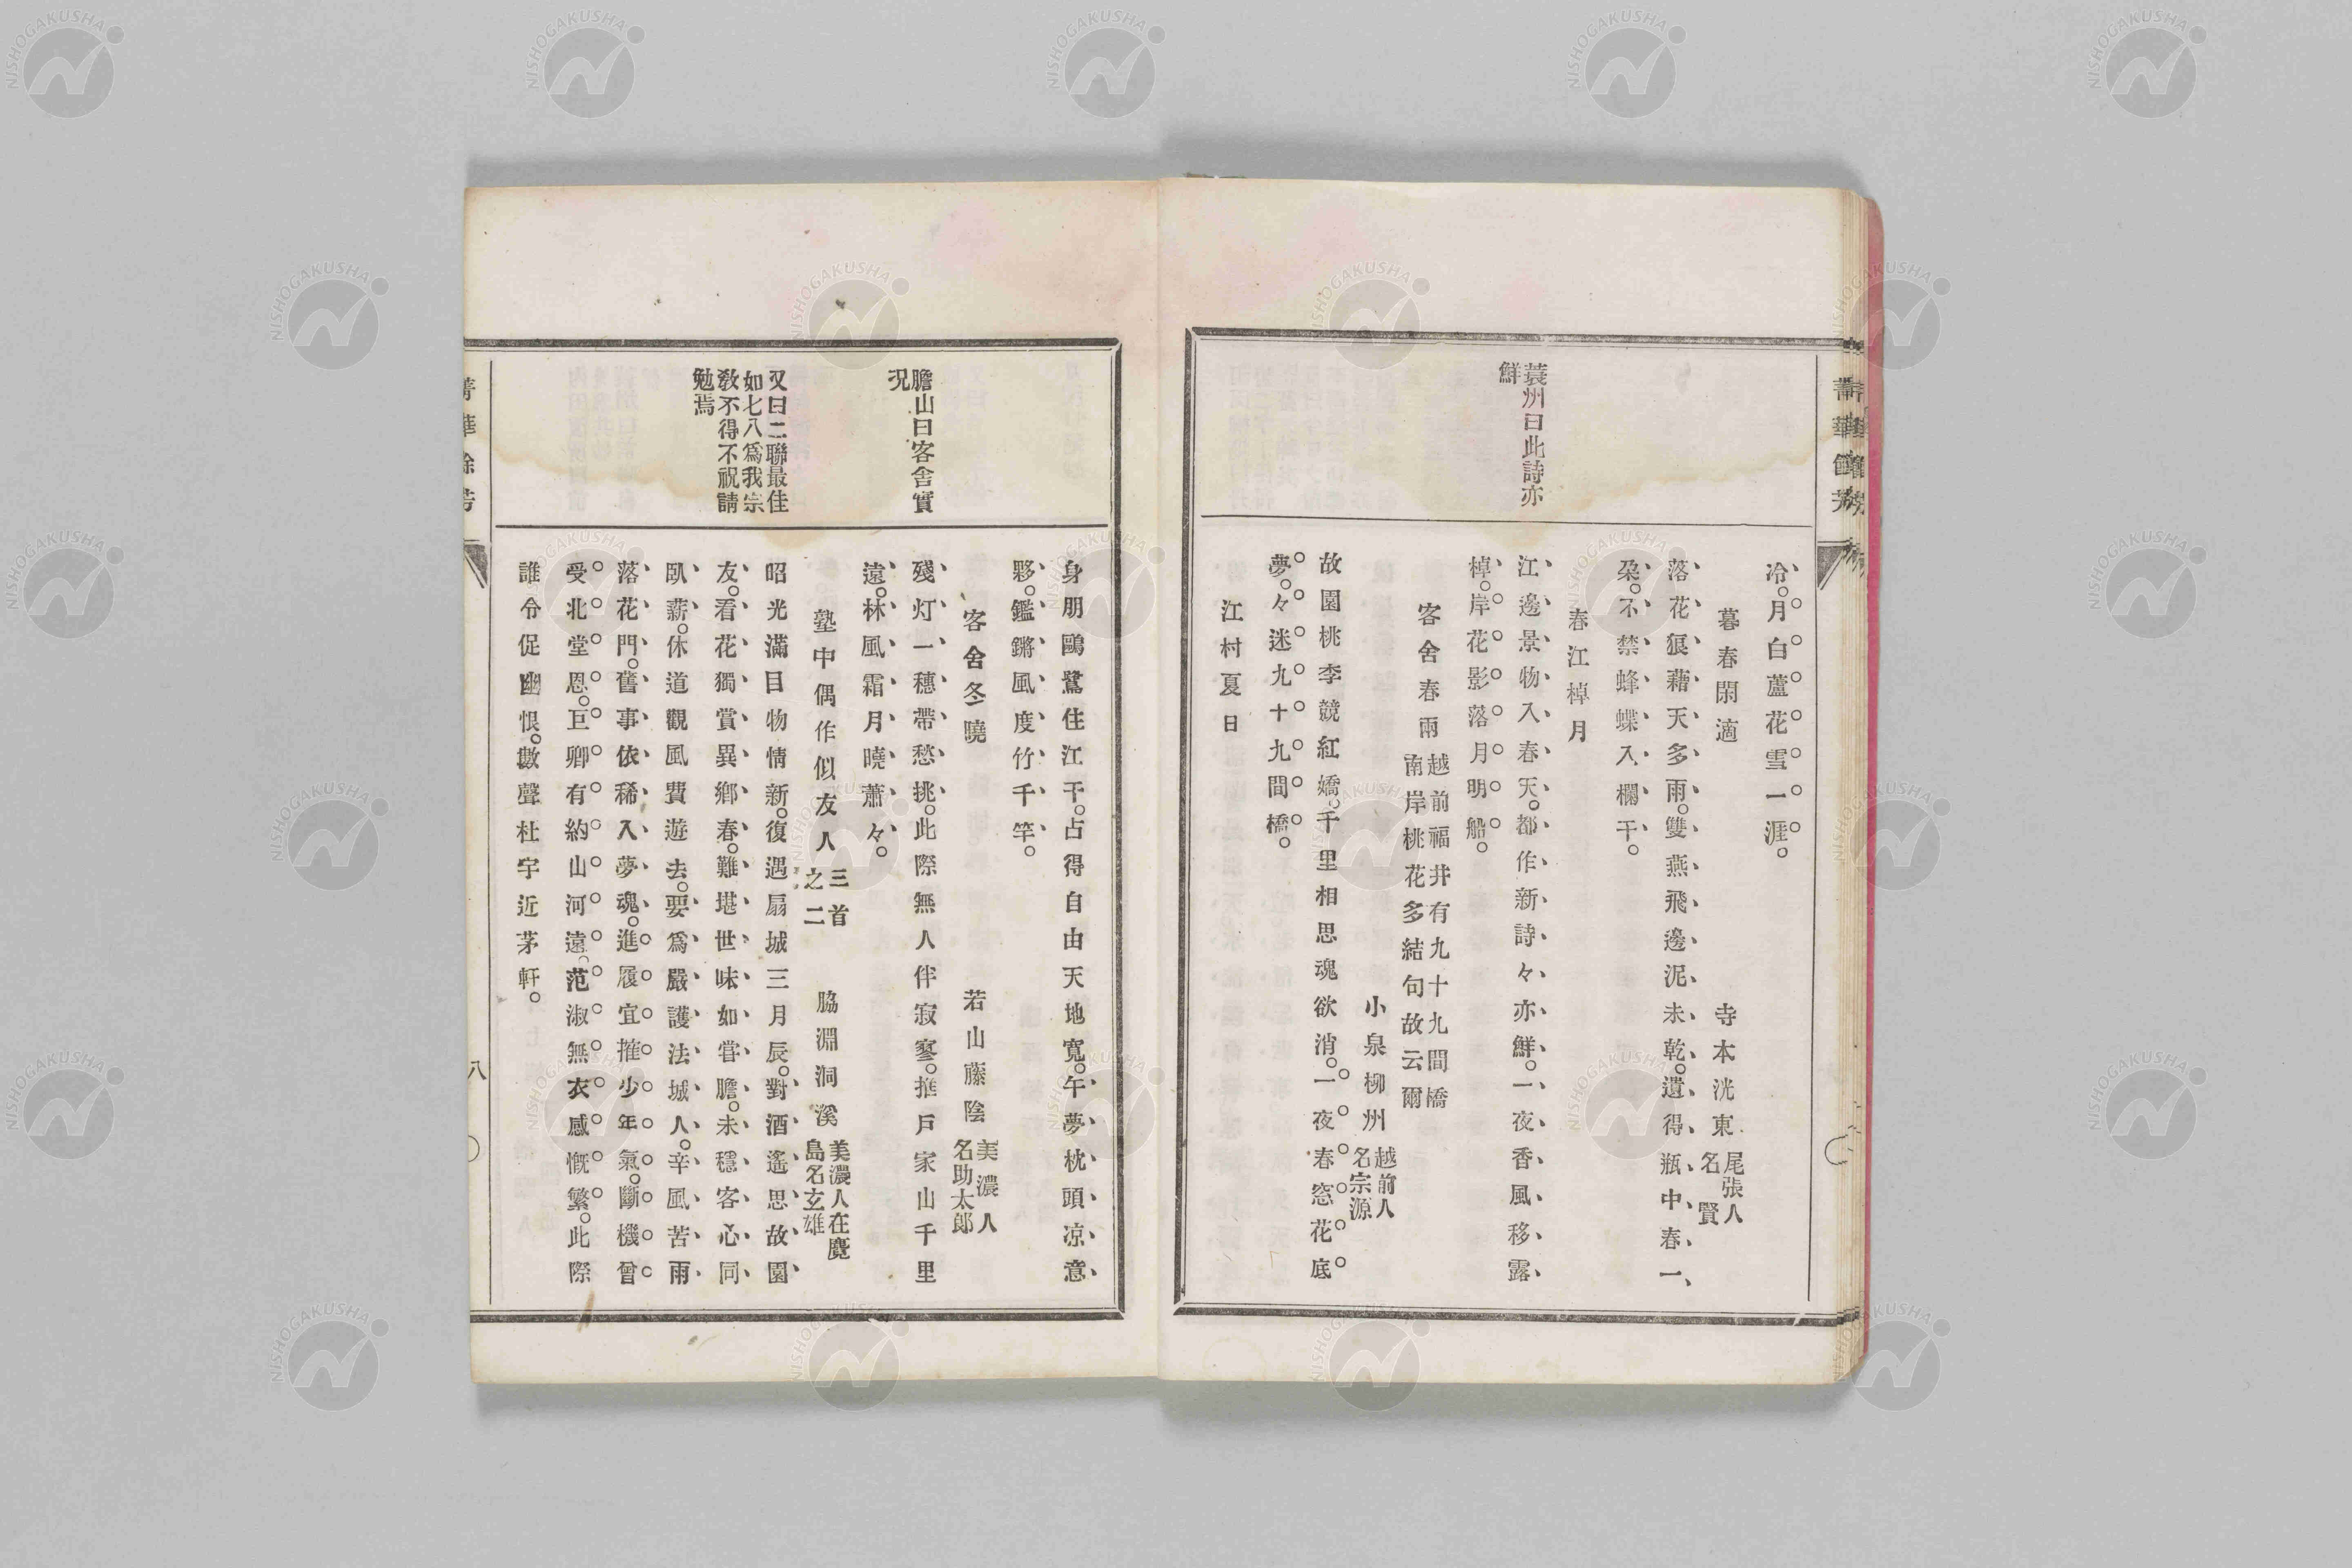 蓑州曰此詩亦
鮮
冷。月白蘆花雪一涯。
暮春閑適
寺本洸東
尾張人
名賢
落花狼藉天多雨。雙燕飛邊泥未乾。遺得瓶中春一
朶。不禁蜂蝶入欄干。
春江棹月
江邊景物入春天。都作新詩々亦鮮。一夜香風移露
棹。岸花影落月明船。
客舍春雨
越前福井有九十九間橋
南岸桃花多結句故云爾
小泉柳州
越前人
名宗源
故園桃李競紅嬌。千里相思魂欲消。一夜春窓花底
夢。々迷九十九間橋。
江村夏日
膽山曰客舍實
况
又曰二聯最佳
如七八爲我宗
敎不得不祝請
勉焉
身朋鷗鷺住江干。占得自由天地寬。午夢枕頭凉意
夥。鑑鏘風度竹千竿。
客舍冬曉
若山藤陰
美濃人
名助太郞
殘灯一穗帶愁挑。此際無人伴寂寥。推戶家山千里
遠。林風霜月曉蕭々。
塾中偶作似友人
三首
之二
脇淵洞溪
美濃人在麑
島名玄雄
昭光滿目物情新。復遇扇城三月辰。對酒遙思故園
友。看花獨賞異鄕春。難堪世味如嘗膽。未穩客心同
臥薪。休道觀風費遊去。要爲嚴護法城人。辛風苦雨
落花門。舊事依稀入夢魂。進履宜摧少年氣。斷機曾
受北堂恩。巨卿有約山河遠。范淑無衣感慨繁。此際
誰令促幽恨。數聲杜宇近茅軒。
八